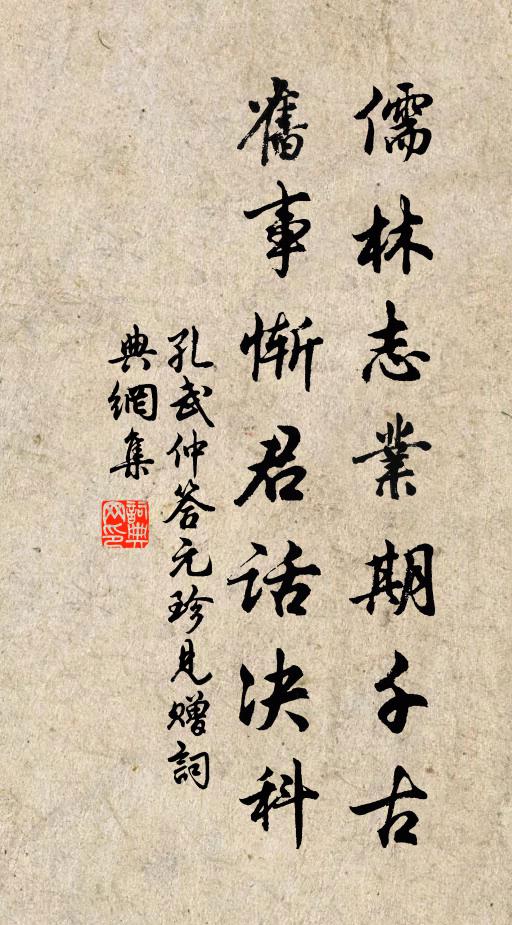 儒林志業期千古
舊事慚君話决科
孔武仲答元珍見贈詞
典網集
詞典網印